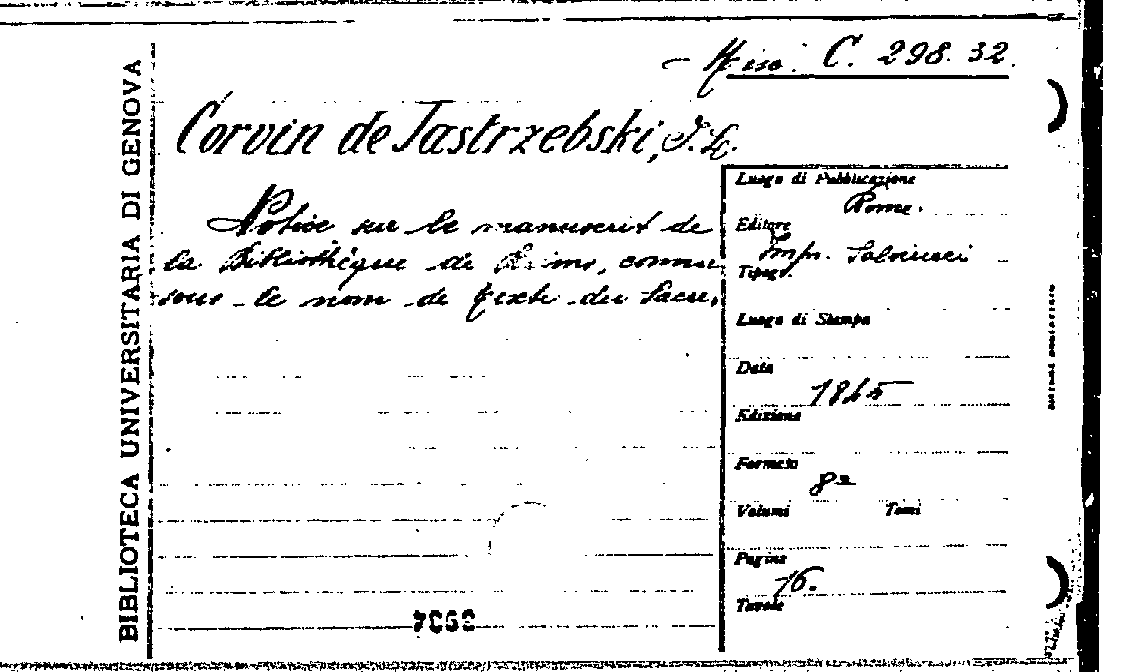 Misc. C. 298. 32.
Corvin de Jastrzebski, J. L.
Notice sur le manuscrit de
la Bibliothèque de Reims, connu
sous le nom de texte du Sacre,
Luogo di Pubblicazione
Rome.
Editore
Imp. Salviucci
Tipogr.
Luogo di Stampa
Data
1845
Edizione
Formato
8º
Volumi Tomi
Pagine
16.
Tavole
BIBLIOTECA UNIVERSITARIA DI GENOVA